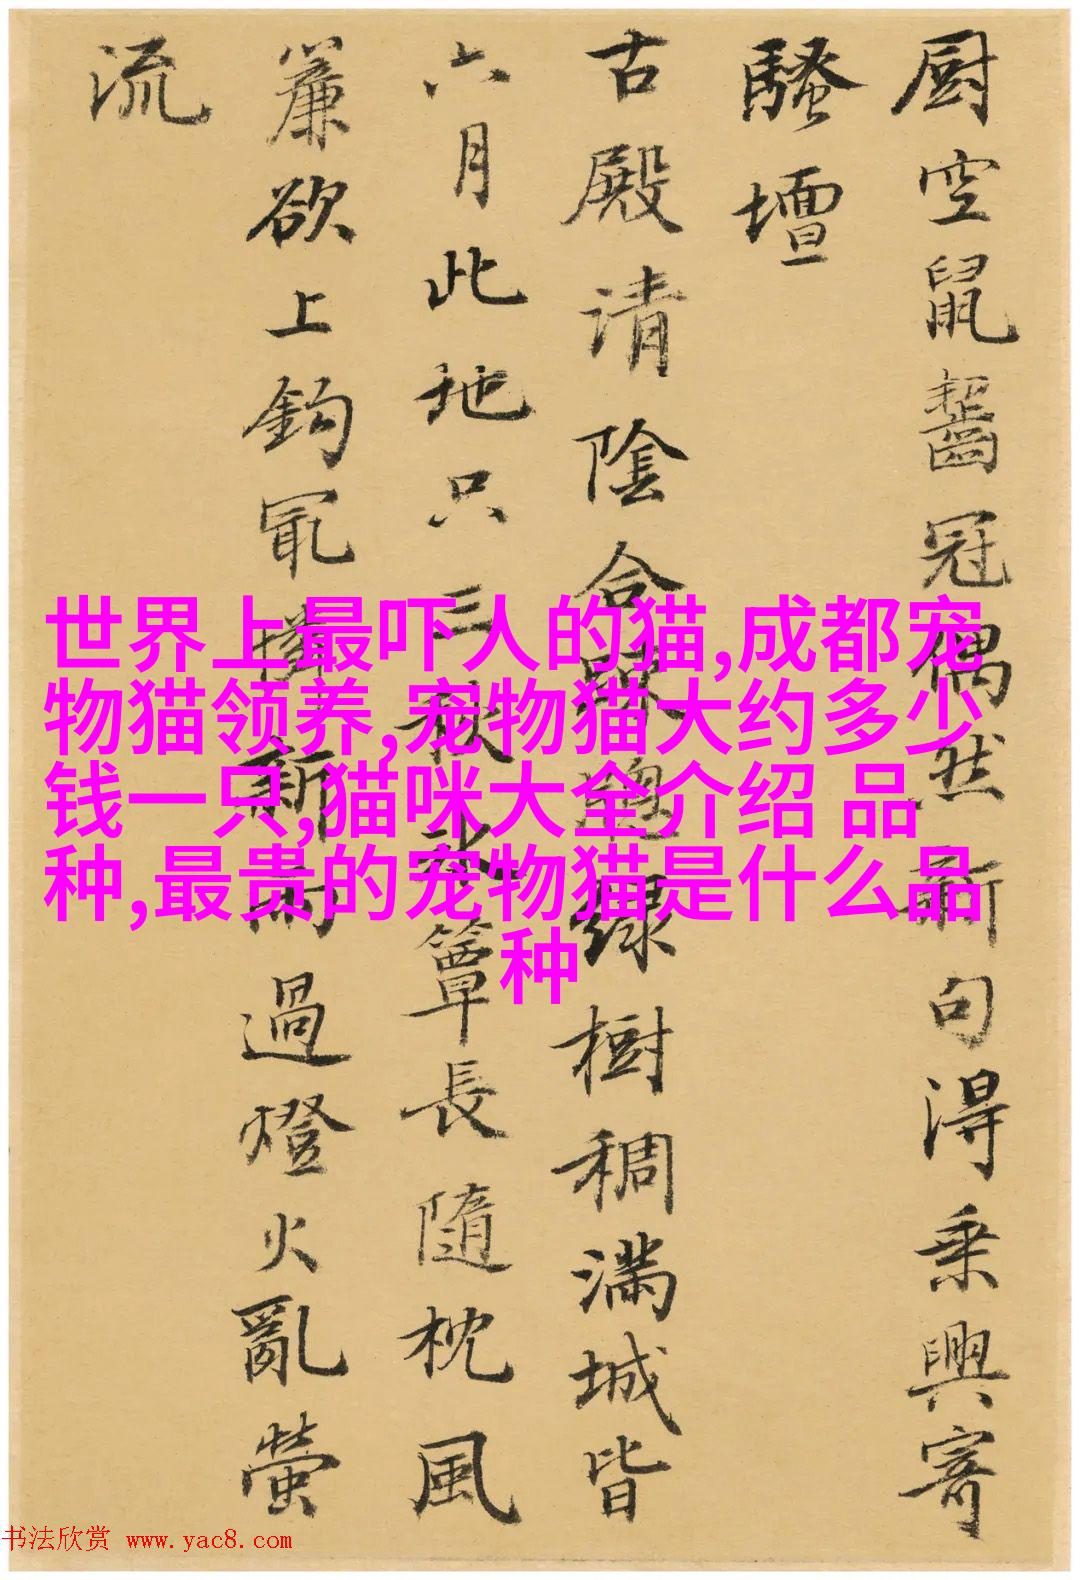 厨空鼠齧冠偶然新句得乗興寄
騷壇
古殿请陰合疎牕緑樹稠满城皆
六月此地只三秋水簟長隨枕風
簾欲上鈎冣憐新雨過燈火亂螢
流
世界上最吓人的猫,成都宠
物猫领养,宠物猫大约多少
钱一只,猫咪大全介绍 品
种,最贵的宠物猫是什么品
种
书法欣赏 www.yac8.com